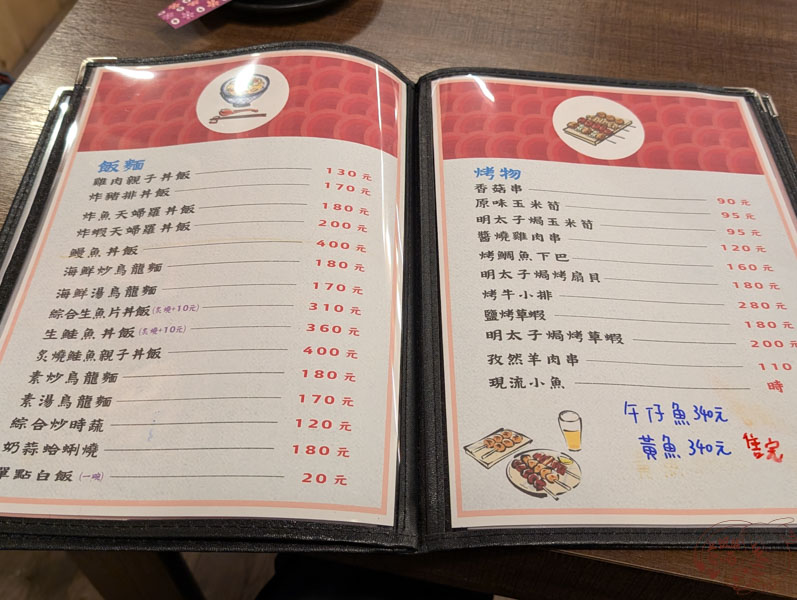 飯麵
雞肉親子丼飯 130元
炸豬排丼飯 170元
炸魚天婦羅丼飯 180元
炸蝦天婦羅丼飯 200元
鰻魚丼飯 400元
海鮮炒烏龍麵 180元
海鮮湯烏龍麵 170元
綜合生魚片丼飯(炙燒+10元) 310元
生鮭魚丼飯(炙燒+10元) 360元
炙燒鮭魚親子丼飯 400元
素炒烏龍麵 180元
素湯烏龍麵 170元
綜合炒時蔬 120元
奶蒜蛤蜊燒 180元
單點白飯(一碗) 20元
烤物
香菇串 90元
原味玉米筍 95元
明太子焗玉米筍 95元
醬燒雞肉串 120元
烤鯛魚下巴 160元
明太子焗烤扇貝 180元
烤牛小排 280元
鹽烤草蝦 180元
明太子焗烤草蝦 200元
孜然羊肉串 110
現流小魚 時
午仔魚340元
黃魚340元 售完